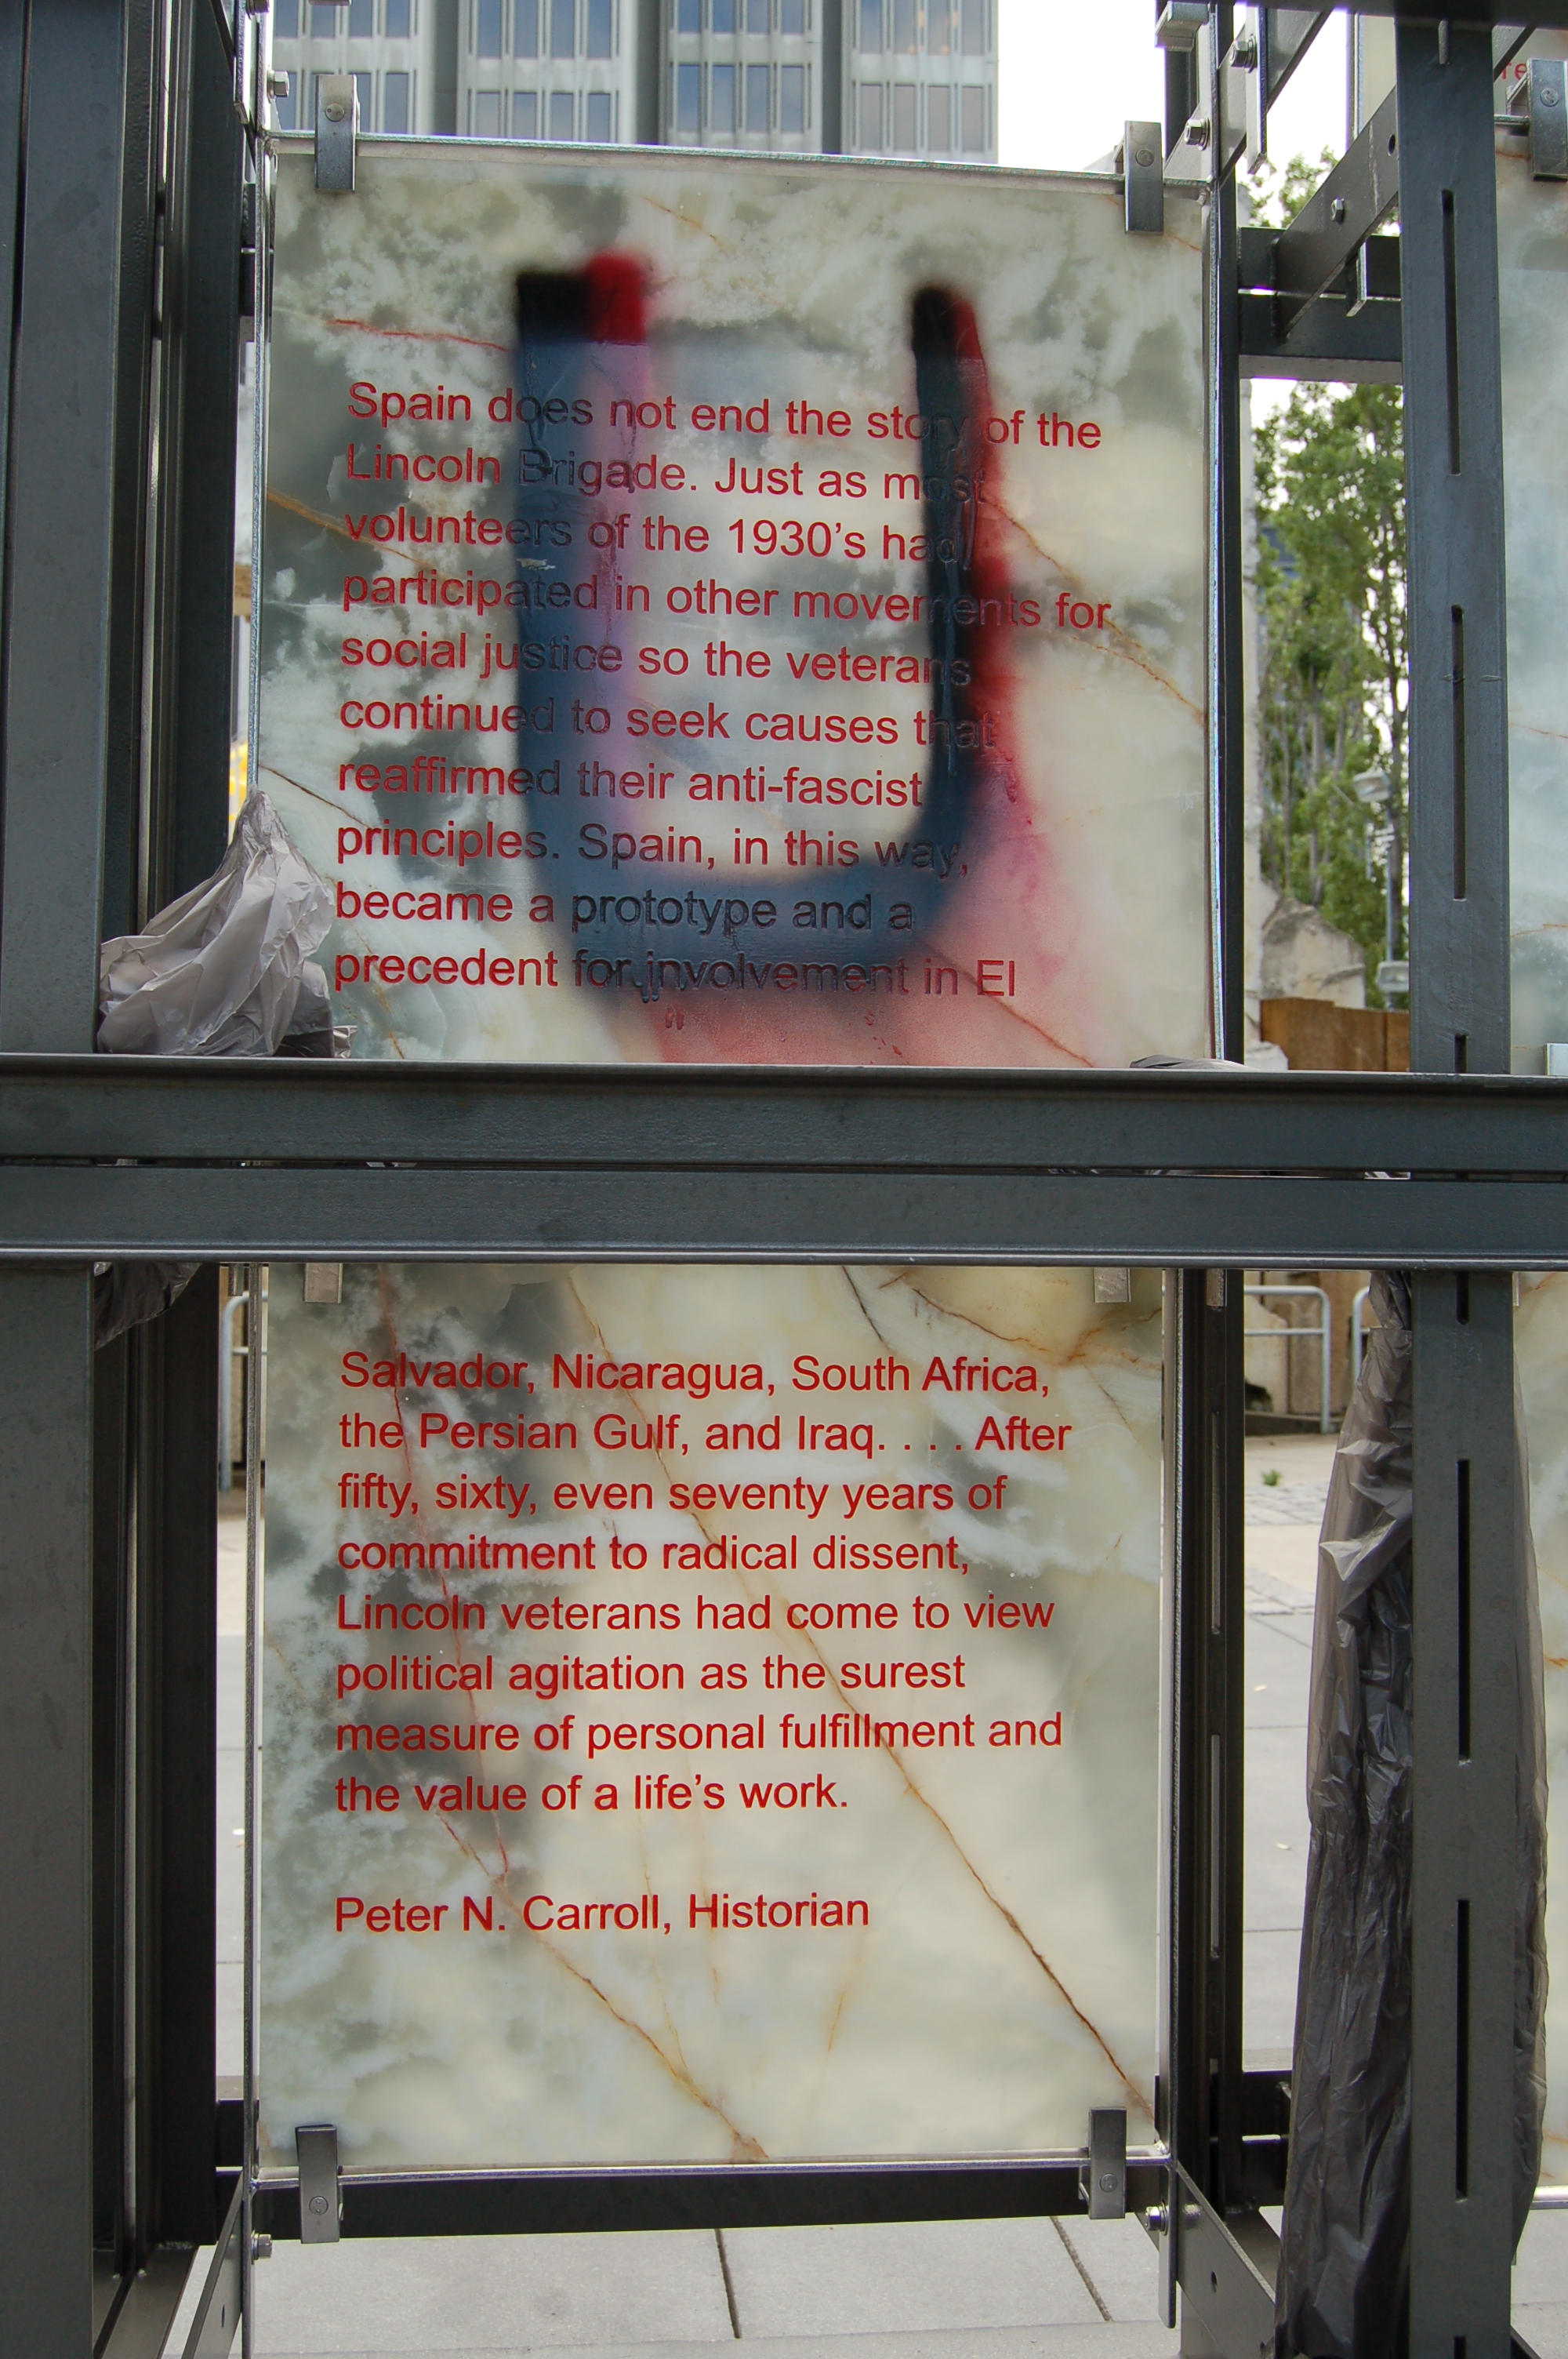 Spain does not end the story of the
Lincoln Brigade. Just as most
volunteers of the 1930's had
participated in other movements for
social justice so the veterans
continued to seek causes that
reaffirmed their anti-fascist
principles. Spain, in this way,
became a prototype and a
precedent for involvement in El
Salvador, Nicaragua, South Africa,
the Persian Gulf, and Iraq. . . . After
fifty, sixty, even seventy years of
commitment to radical dissent,
Lincoln veterans had come to view
political agitation as the surest
measure of personal fulfillment and
the value of a life's work.
Peter N. Carroll, Historian